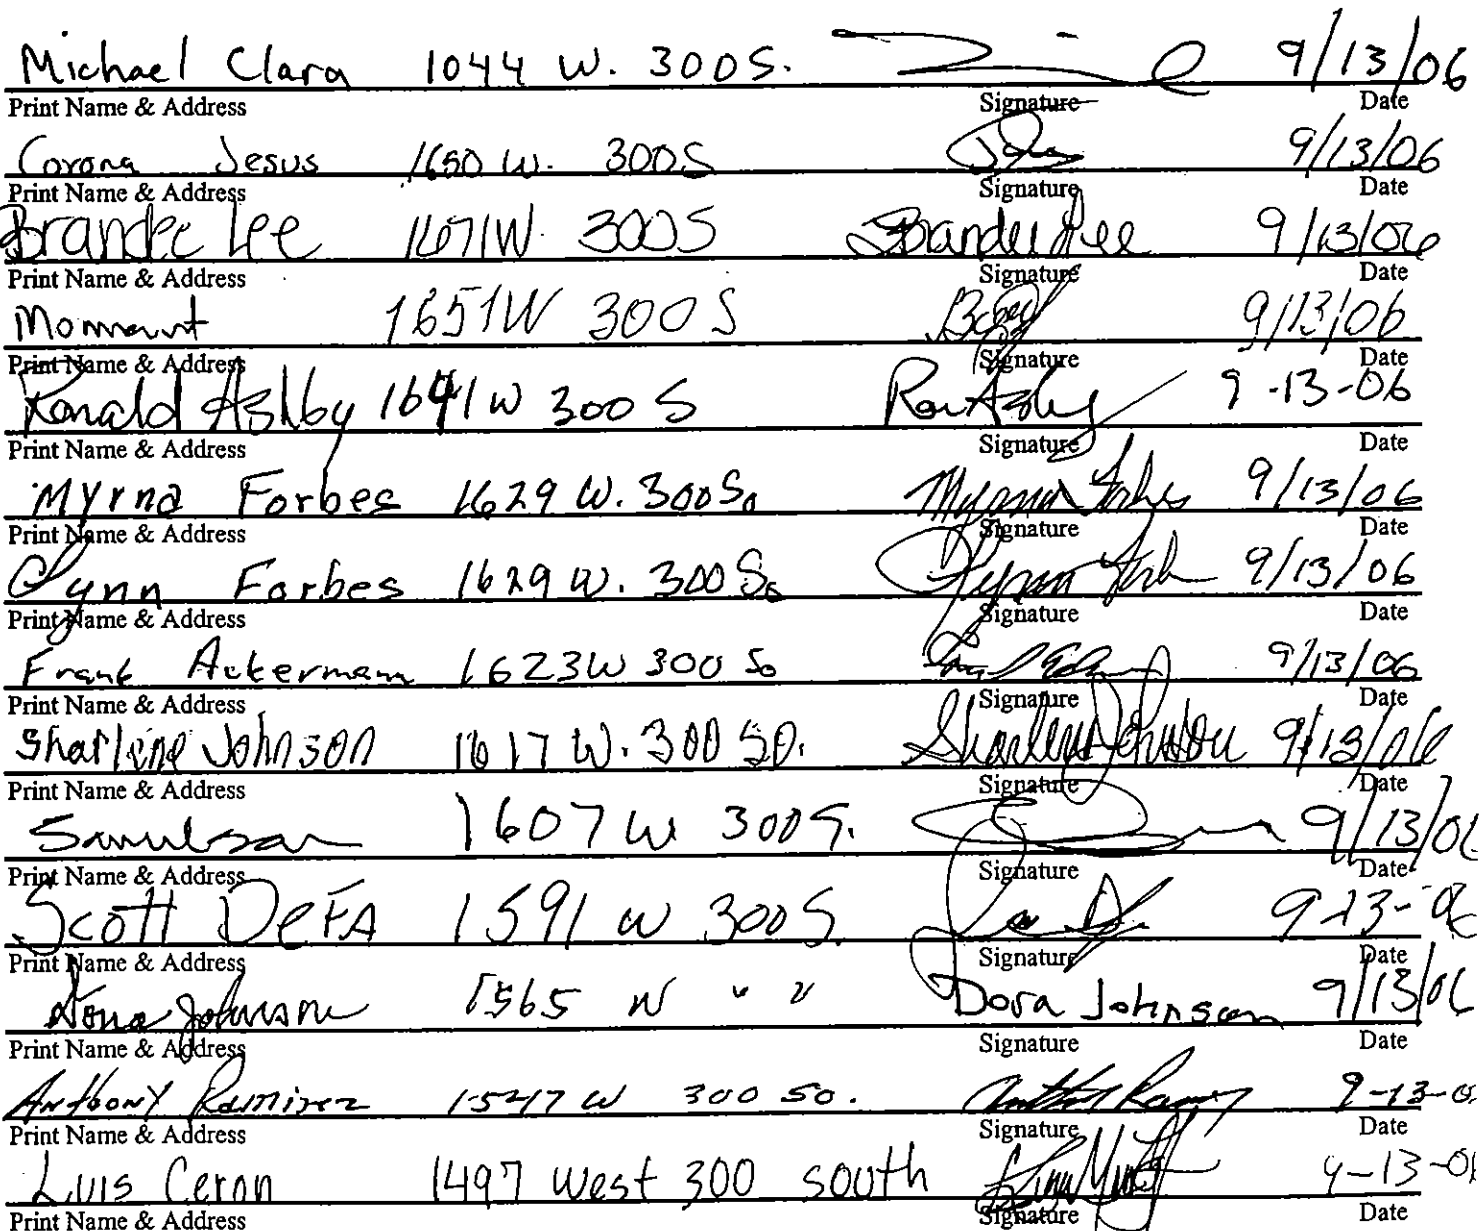 Michael Clara 1044 W. 300 S. 9/13/06
Print Name & Address Signature Date
Corona Jesus 1650 W. 300 S 9/13/06
Print Name & Address Signature Date
Brandee Lee 1671 W. 300 S Brandee Lee 9/13/06
Print Name & Address Signature Date
1651 W 300 S 9/13/06
Print Name & Address Signature Date
Ronald Ashby 1641 W 300 S Ron Ashby 9-13-06
Print Name & Address Signature Date
Myrna Forbes 1629 W. 300 So Myrna Forbes 9/13/06
Print Name & Address Signature Date
Lynn Forbes 1629 W. 300 So 9/13/06
Print Name & Address Signature Date
Frank Ackermann 1623 W 300 So 9/13/06
Print Name & Address Signature Date
Sharlene Johnson 1617 W. 300 SO. Sharlene Johnson 9/13/06
Print Name & Address Signature Date
1607 W 300 S. 9/13/06
Print Name & Address Signature Date
Scott DeFA 1591 W 300 S. 9-13-06
Print Name & Address Signature Date
Johnson 1565 W " " Dora Johnson 9/13/06
Print Name & Address Signature Date
Anthony Ramirez W 300 SO. 9-13-0
Print Name & Address Signature Date
Luis Ceron 1497 West 300 South 9-13-06
Print Name & Address Signature Date